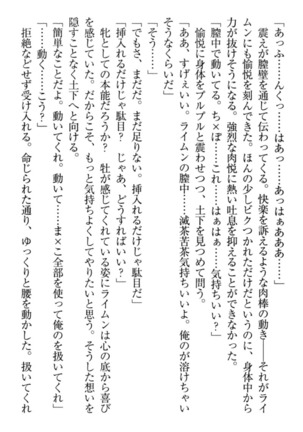 「あっふ……んくっ……はあっ……あっはぁぁぁぁ」
　震えが膣壁を通じて伝わってくる。快楽を訴えるような肉棒の動き――それがライ
ムンにも愉悦を刻んできた。ほんの少しビクつかれただけだというのに、身体中から
力が抜けそうになる。強烈な肉悦に熱い吐息を抑えることができなかった。
「膣中で動いてる。ち×ぽ……これ……はぁはぁ……気持ちいい？」
　愉悦に身体をブルブルと震わせつつ、土下を見つめて問う。
「ああ、すげぇいい。ライムンの膣中……滅茶苦茶気持ちいいよ。俺のが溶けちゃい
そうなくらいだ」
「そう……」
「でもさ、まだだ。まだ足りない。挿入れるだけじゃ駄目だ」
「挿入れるだけじゃ駄目？　じゃあ、どうすればいい？」
　牝としての本能だろうか？　牡が感じてくれている姿にライムンは心の底から喜び
を感じていた。だからこそ、もっと気持ちよくしてやりたいと思う。そうした想いを
隠すことなく土下へと向ける。
「簡単なことだよ。動いてくれ。動いて……ま×こ全部を使って俺のを扱いてくれ」
「……動く……こう？」
　拒絶などせず受け入れる。命じられた通り、ゆっくりと腰を動かした。扱いてくれ